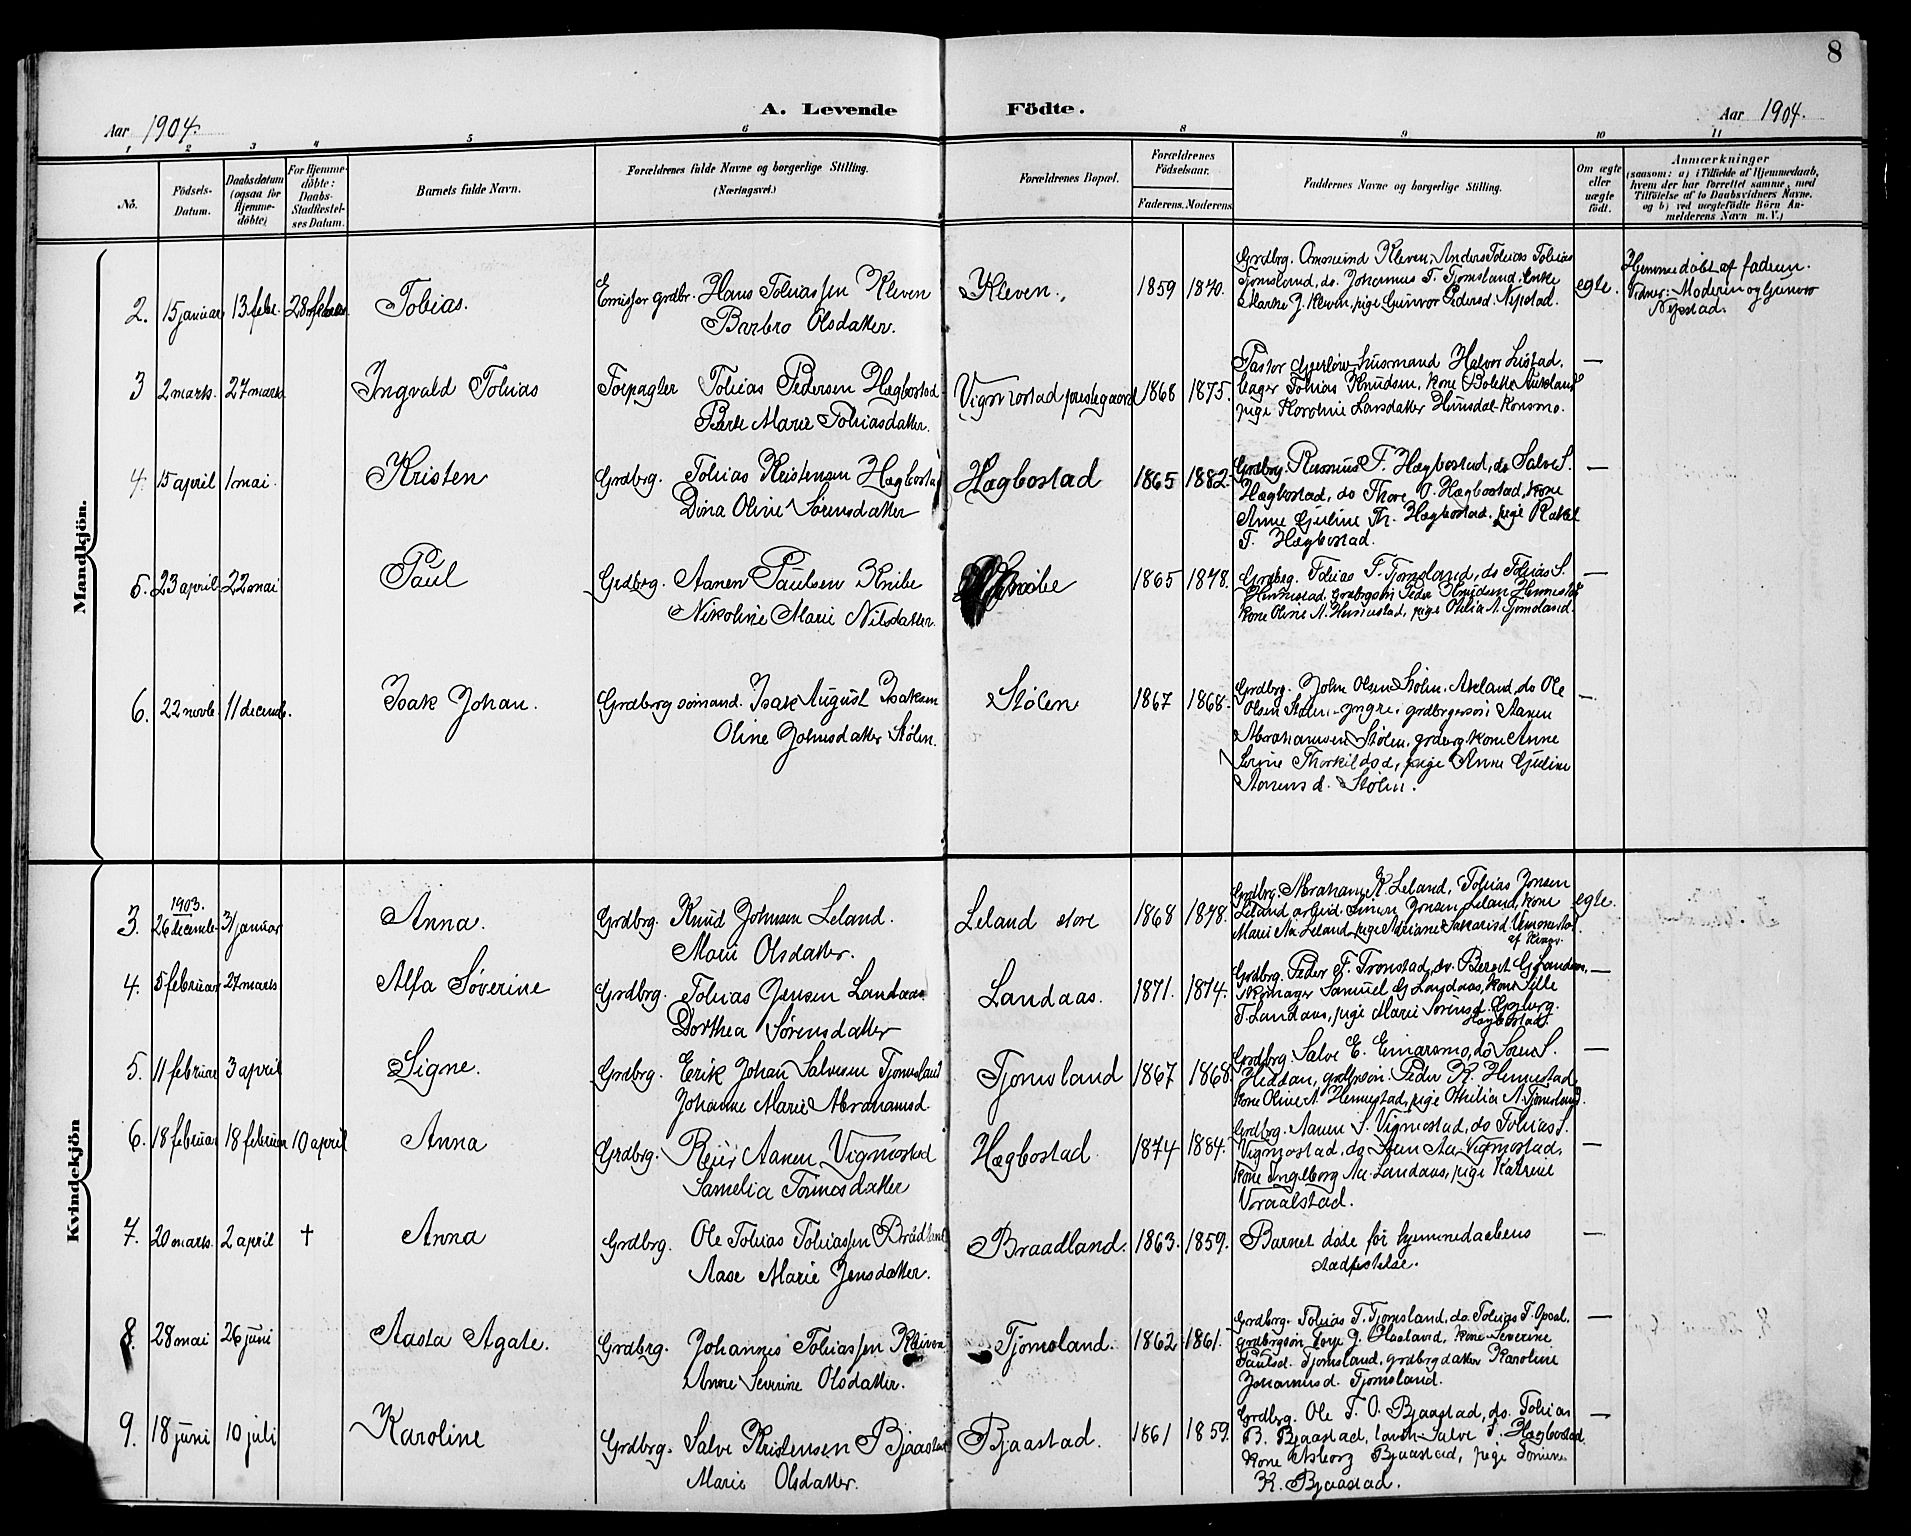 8
A. Levende Födte.
Aar 1904.
Aar 1904.
1 2 3 4 5 6 8 9 10 11
No.
Födsels-
Datum.
Daabsdatum
(ogsaa for
Hjemme-
döbte)
For Hjemme-
döbte:
Daabs-
Stadfæstel-
ses Datum.
Barnets fulde Navn.
Forældrenes fulde Navne og borgerlige Stilling.
(Næringsvei.)
Forældrenes Bopæl.
Forældrenes
Födselsaar.
Faderens. Moderens.
Faddernes Navne og borgerlige Stilling.
Om ægte
eller
uægte
födt.
Anmærkninger
(saasom: a) i Tilfælde af Hjemmedaab,
hvem der har forrettet samme, med
Tilföielse af to Daabsvidners Navne.
og b) ved uægtefödte Börn An-
melderens Navn m. V.)
Mandkjön.
2. 15 januar 13 febr. 28 februar Tobias.
Emissær grdbr. Hans Tobiassen Kleven
Barbro Olsdatter.
Kleven. 1859 1870.
Grdbrg. Omsund Kleven, Anders Tobias Tobias
Tjomsland, do. Johannes T. Tjomsland, Enke
Marthe J. Kleven, pige Gunvor Pedersd. Nystad.
egte.
Hjemmedøbt af faderen.
Vidner: Moderen og Gunvor
Nystad.
3 2 marts. 27 marts Ingvald Tobias
Forpagter Tobias Pedersen Hægbostad
Berte Marie Tobiasdatter.
Vigmostad prestegaard 1868 1875.
Pastor Gjerløw, husmand Halvor Listad,
bager Tobias Knudsen, kone Bolette
pige Karoline Larsdatter Konsmo.
—
4. 15 april 1 mai. Kristen
Grdbrg. Tobias Kristensen Hægbostad
Dina Oline Sørensdatter
Hægbostad 1865 1882.
Grdbrg. Rasmus T. Hægbostad, do Salve S.
Hægbostad, do Thore O. Hægbostad, kone
Anne Gjeline Th. Hægbostad, pige Rakel
T. Hægbostad.
—
5. 23 april 22 mai Paul
Grdbrg. Aanen Paulsen Knibe
Nikoline Marie Nilsdatter.
Knibe 1865 1878.
Grdbrg. Tobias T. Tjomsland, do Tobias S.
Hennestad, grdbrgsøn Peder Knudsen Hennestad
kone Oline A. Hennestad, pige Othilia A. Tjomsland.
—
6. 22 novbr 11 decemb. Isak Johan.
Grdbrg sømand. Isak August Isaksen
Oline Johnsdatter Stølen.
Stølen 1867 1868.
Grdbrg. John Olsen Stølen, Aseland, do Ole
Olsen Stølen, yngre, grdbrgersøn Aanen
Abrahamsen Stølen, grdbrg. kone Anne
Serine Thorkildsd, pige Anne Gjeline
Aanensd. Stølen.
—
Kvindekjön
3. 1903. 26 decembr 31 januar Anna.
Grdbrg. Knud Johnsen Leland.
Mari Olsdatter.
Leland store 1868 1878.
Grdbrg. Abraham K Leland, Tobias Jonsen
Leland, arbeid. Simon Jonsen Leland, kone
Marie Aa. Leland, pige Adriane Sakarisd.
egte.
4. 5 februar 27 marts Alfa Søverine
Grdbrg. Tobias Jensen Landaas
Dorthea Sørensdatter
Landaas. 1871. 1874.
Grdbrg. Peder F. Tronstad, do. Berent G Landaas,
skomager Samuel G Landaas, kone Sille
T. Landaas, pige Marie Sørensd.
Hægbostad.
—
5. 11 februar 3 april Signe.
Grdbrg. Erik Johan Salvesen Tjomsland
Johanne Marie Abrahamsd.
Tjomsland 1867 1868
Grdbrg. Salve E. Einarsmo, do Søren S.
Heddan, grdbrsøn. Peder K. Hennestad,
kone Oline A. Hennestad, pige Othilia A. Tjomsland.
—
6. 18 februar 18 februar 10 april Anna
Grdbrg. Reier Aanen Vigmostad
Samelia Tomesdatter
Hægbostad. 1874 1884.
Grdbrg. Aanen S. Vigmostad, do Tobias S.
Vigmostad, do Sven Aa. Vigmostad,
kone Ingeborg Aa. Landaas, pige Katrine
Vraalstad.
—
7. 20 marts. 2 april † Anna
Grdbrg. Ole Tobias Tobiassen Brådland
Aase Marie Jensdatter.
Braadland. 1863. 1859.
Barnet døde før hjemmedaabens
stadfæstelse.
—
8. 28 mai 26 juni Aasta Agate.
Grdbrg. Johannes Tobiassen Kleven
Anne Severine Olsdatter.
Tjomsland. 1862 1861.
Grdbrg. Tobias T. Tjomsland, do. Tobias T. Opsal,
grdbrgsøn Tore J. kone Severine
Paulsd. Tjomsland, grdbrgdatter Karoline
Johannesd. Tjomsland.
—
9. 18 juni 10 juli Karoline
Grdbrg. Salve Kristensen Bjaastad
Marie Olsdatter.
Bjaastad. 1861 1859.
Grdbrg. Ole T. O. Bjaastad, do. Tobias
B. Bjaastad, Salve S. Hægbostad
kone Asborg Bjaastad, pige Tomine
K. Bjaastad.
—